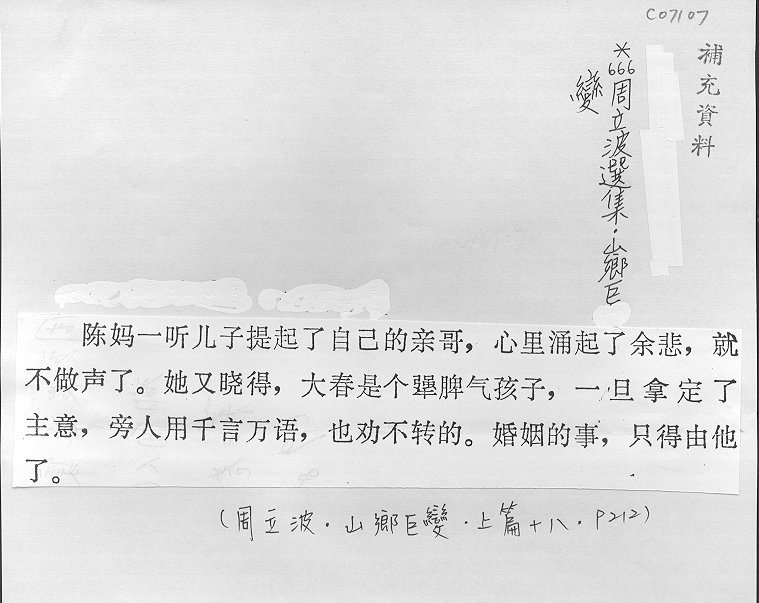 C07107
補充資料
*666周立波選集·山鄉巨
變
陈妈一听儿子提起了自己的亲哥，心里涌起了余悲，就
不做声了。她又晓得，大春是个犟脾气孩子，一旦拿定了
主意，旁人用千言万语，也劝不转的。婚姻的事，只得由他
了。
（周立波·山鄉巨變·上篇十八·P212）